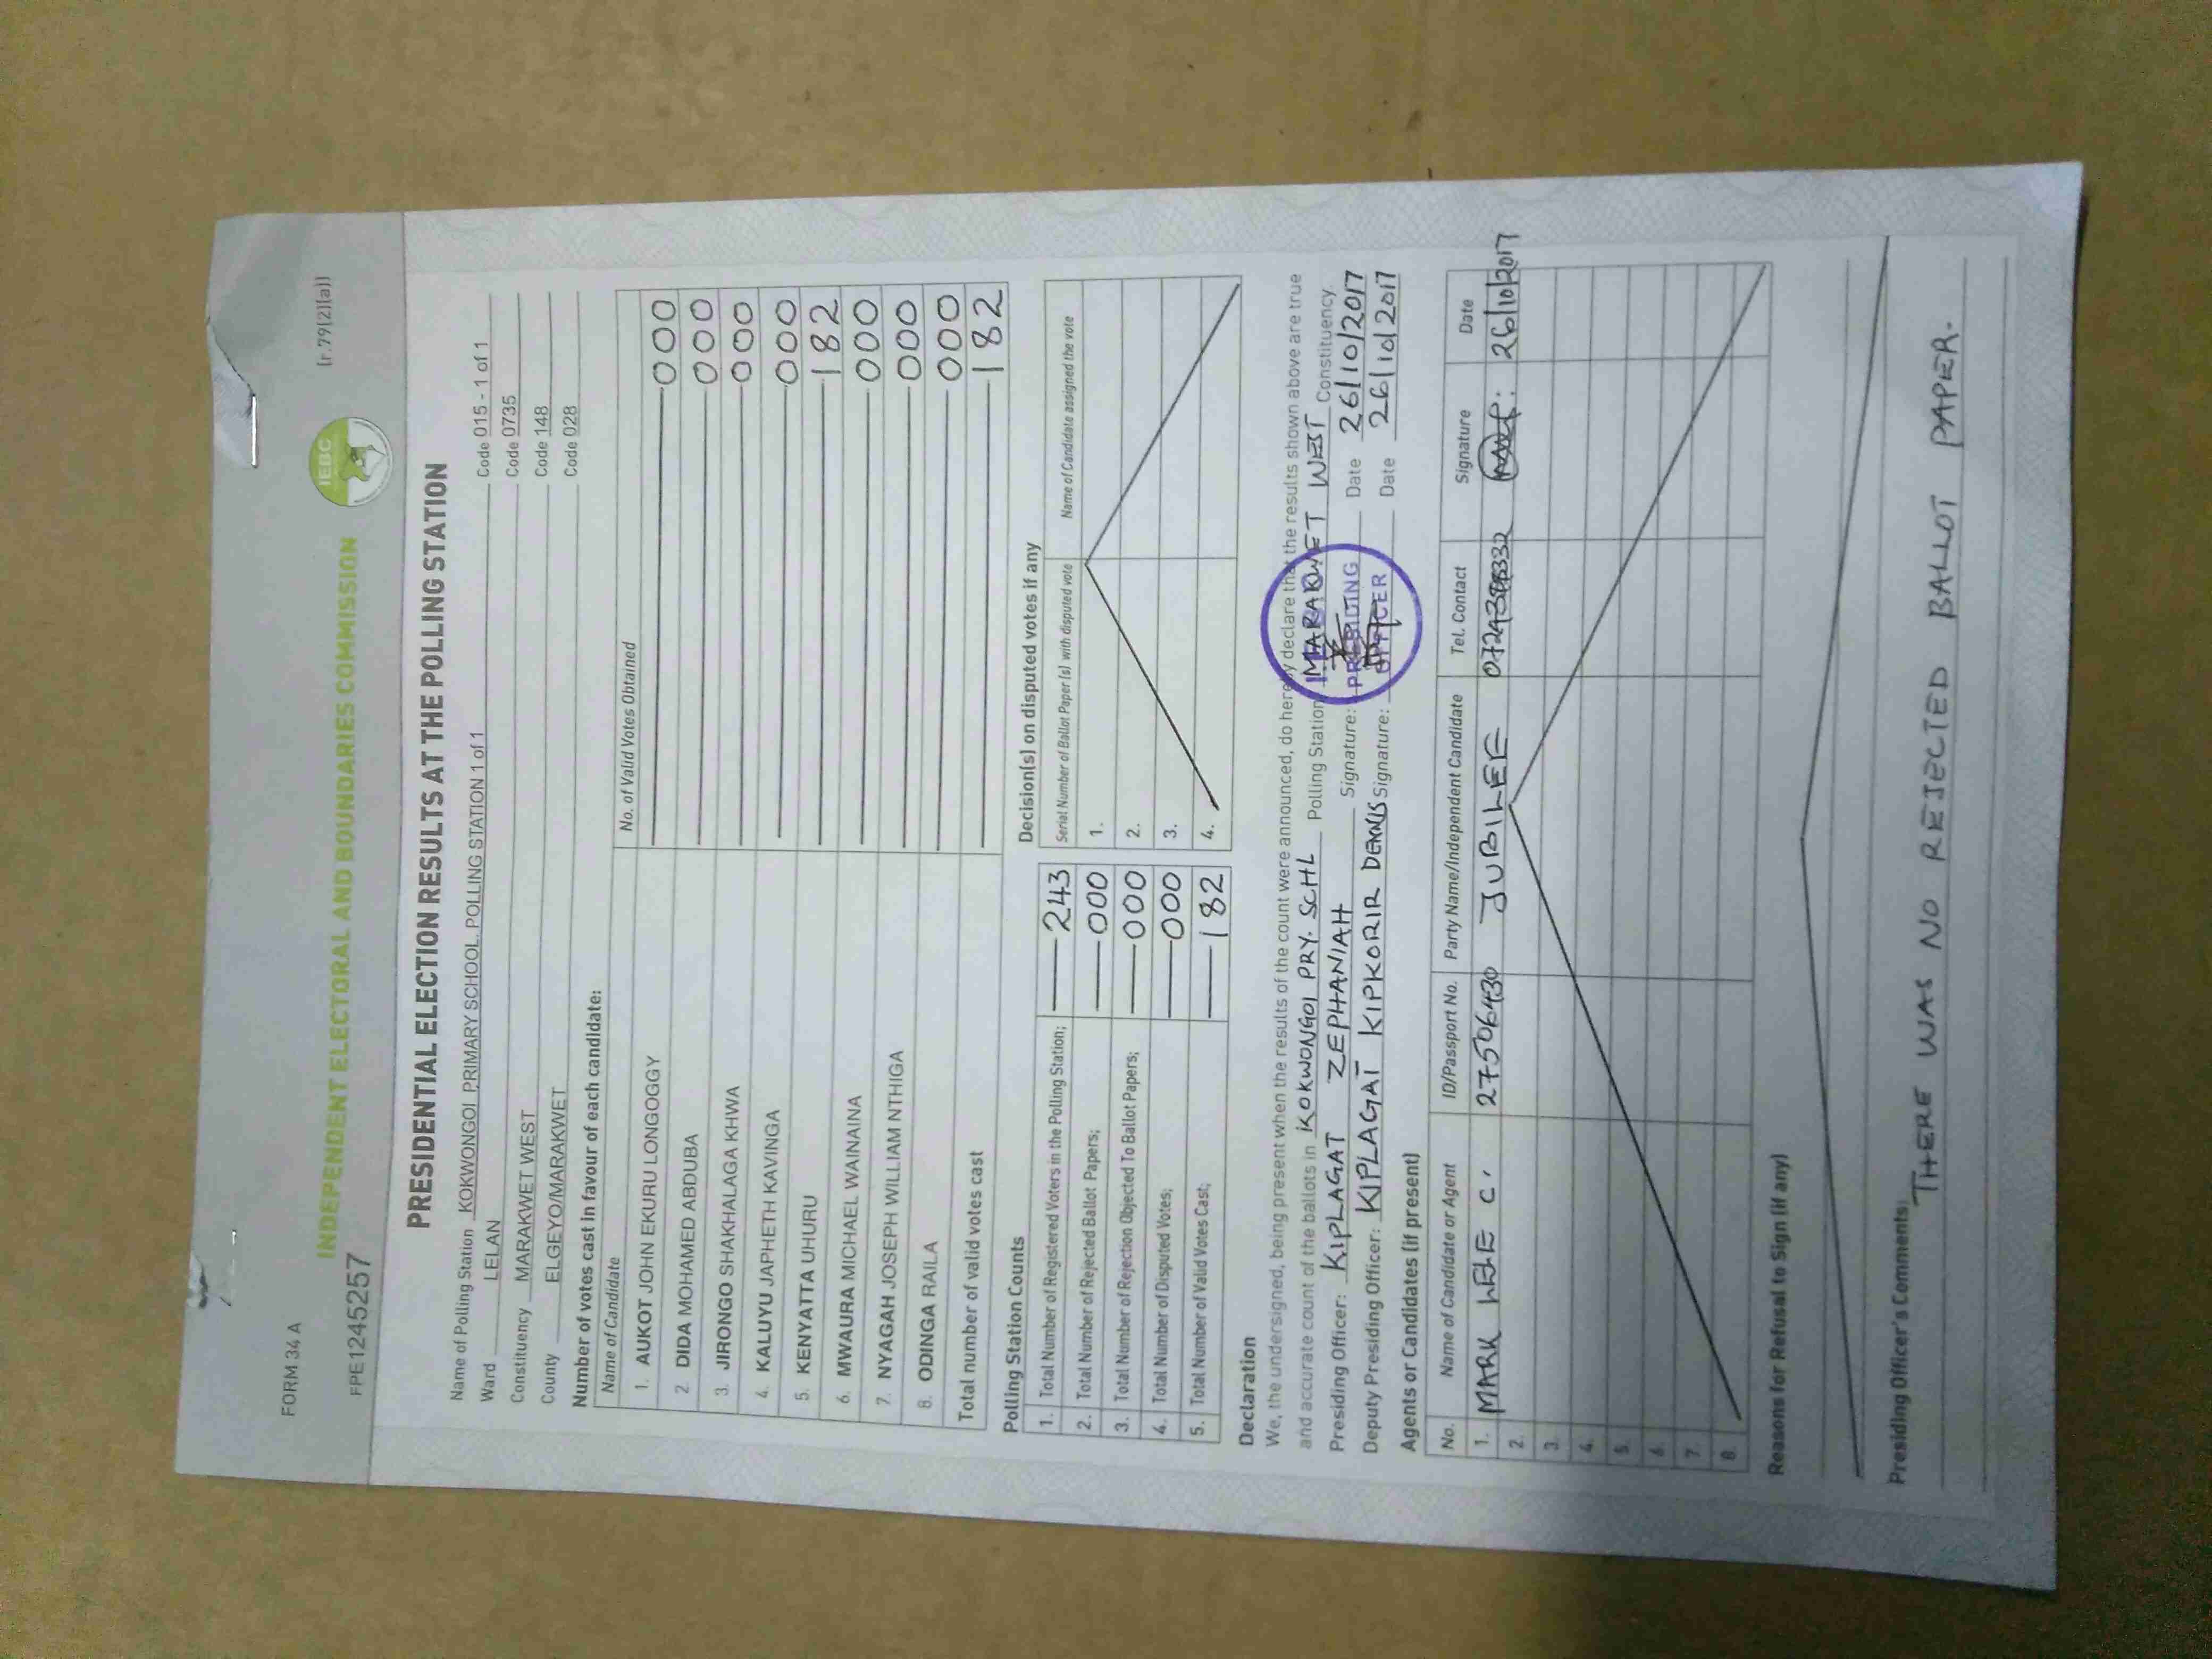 FORM 34 A
[r.79(2)(a)]
IEBC
INDEPENDENT ELECTORAL AND BOUNDARIES COMMISSION
FPE1245257
PRESIDENTIAL ELECTION RESULTS AT THE POLLING STATION
Name of Polling Station KOKWONGOI PRIMARY SCHOOL. POLLING STATION 1 of 1 Code 015 - 1 of 1
Ward LELAN Code 0735
Constituency MARAKWET WEST Code 148
County ELGEYO/MARAKWET Code 028
Number of votes cast in favour of each candidate:
Name of Candidate No. of Valid Votes Obtained
1. AUKOT JOHN EKURU LONGOGGY 000
2. DIDA MOHAMED ABDUBA 000
3. JIRONGO SHAKHALAGA KHWA 000
4. KALUYU JAPHETH KAVINGA 000
5. KENYATTA UHURU 182
6. MWAURA MICHAEL WAINAINA 000
7. NYAGAH JOSEPH WILLIAM NTHIGA 000
8. ODINGA RAILA 000
Total number of valid votes cast 182
Polling Station Counts
1. Total Number of Registered Voters in the Polling Station; 243
2. Total Number of Rejected Ballot Papers; 000
3. Total Number of Rejection Objected To Ballot Papers; 000
4. Total Number of Disputed Votes; 000
5. Total Number of Valid Votes Cast; 182
Decision(s) on disputed votes if any
Serial Number of Ballot Paper(s) with disputed vote Name of Candidate assigned the vote
1.
2.
3.
4.
Declaration
We, the undersigned, being present when the results of the count were announced, do hereby declare that the results shown above are true
and accurate count of the ballots in KOKWONGOI PRY. SCHL Polling Station MARAKWET WEST Constituency.
Presiding Officer: KIPLAGAT ZEPHANIAH Signature: Date 26/10/2017
Deputy Presiding Officer: KIPLAGAT KIPKORIR DENNIS Signature: Date 26/10/2017
PRESIDING
OFFICER
Agents or Candidates (if present)
No. Name of Candidate or Agent ID/Passport No. Party Name/Independent Candidate Tel. Contact Signature Date
1. MARK C. 27506430 JUBILEE 26/10/2017
2.
3.
4.
5.
6.
7.
8.
Reasons for Refusal to Sign (if any)
Presiding Officer's Comments:
THERE WAS NO REJECTED BALLOT PAPER.